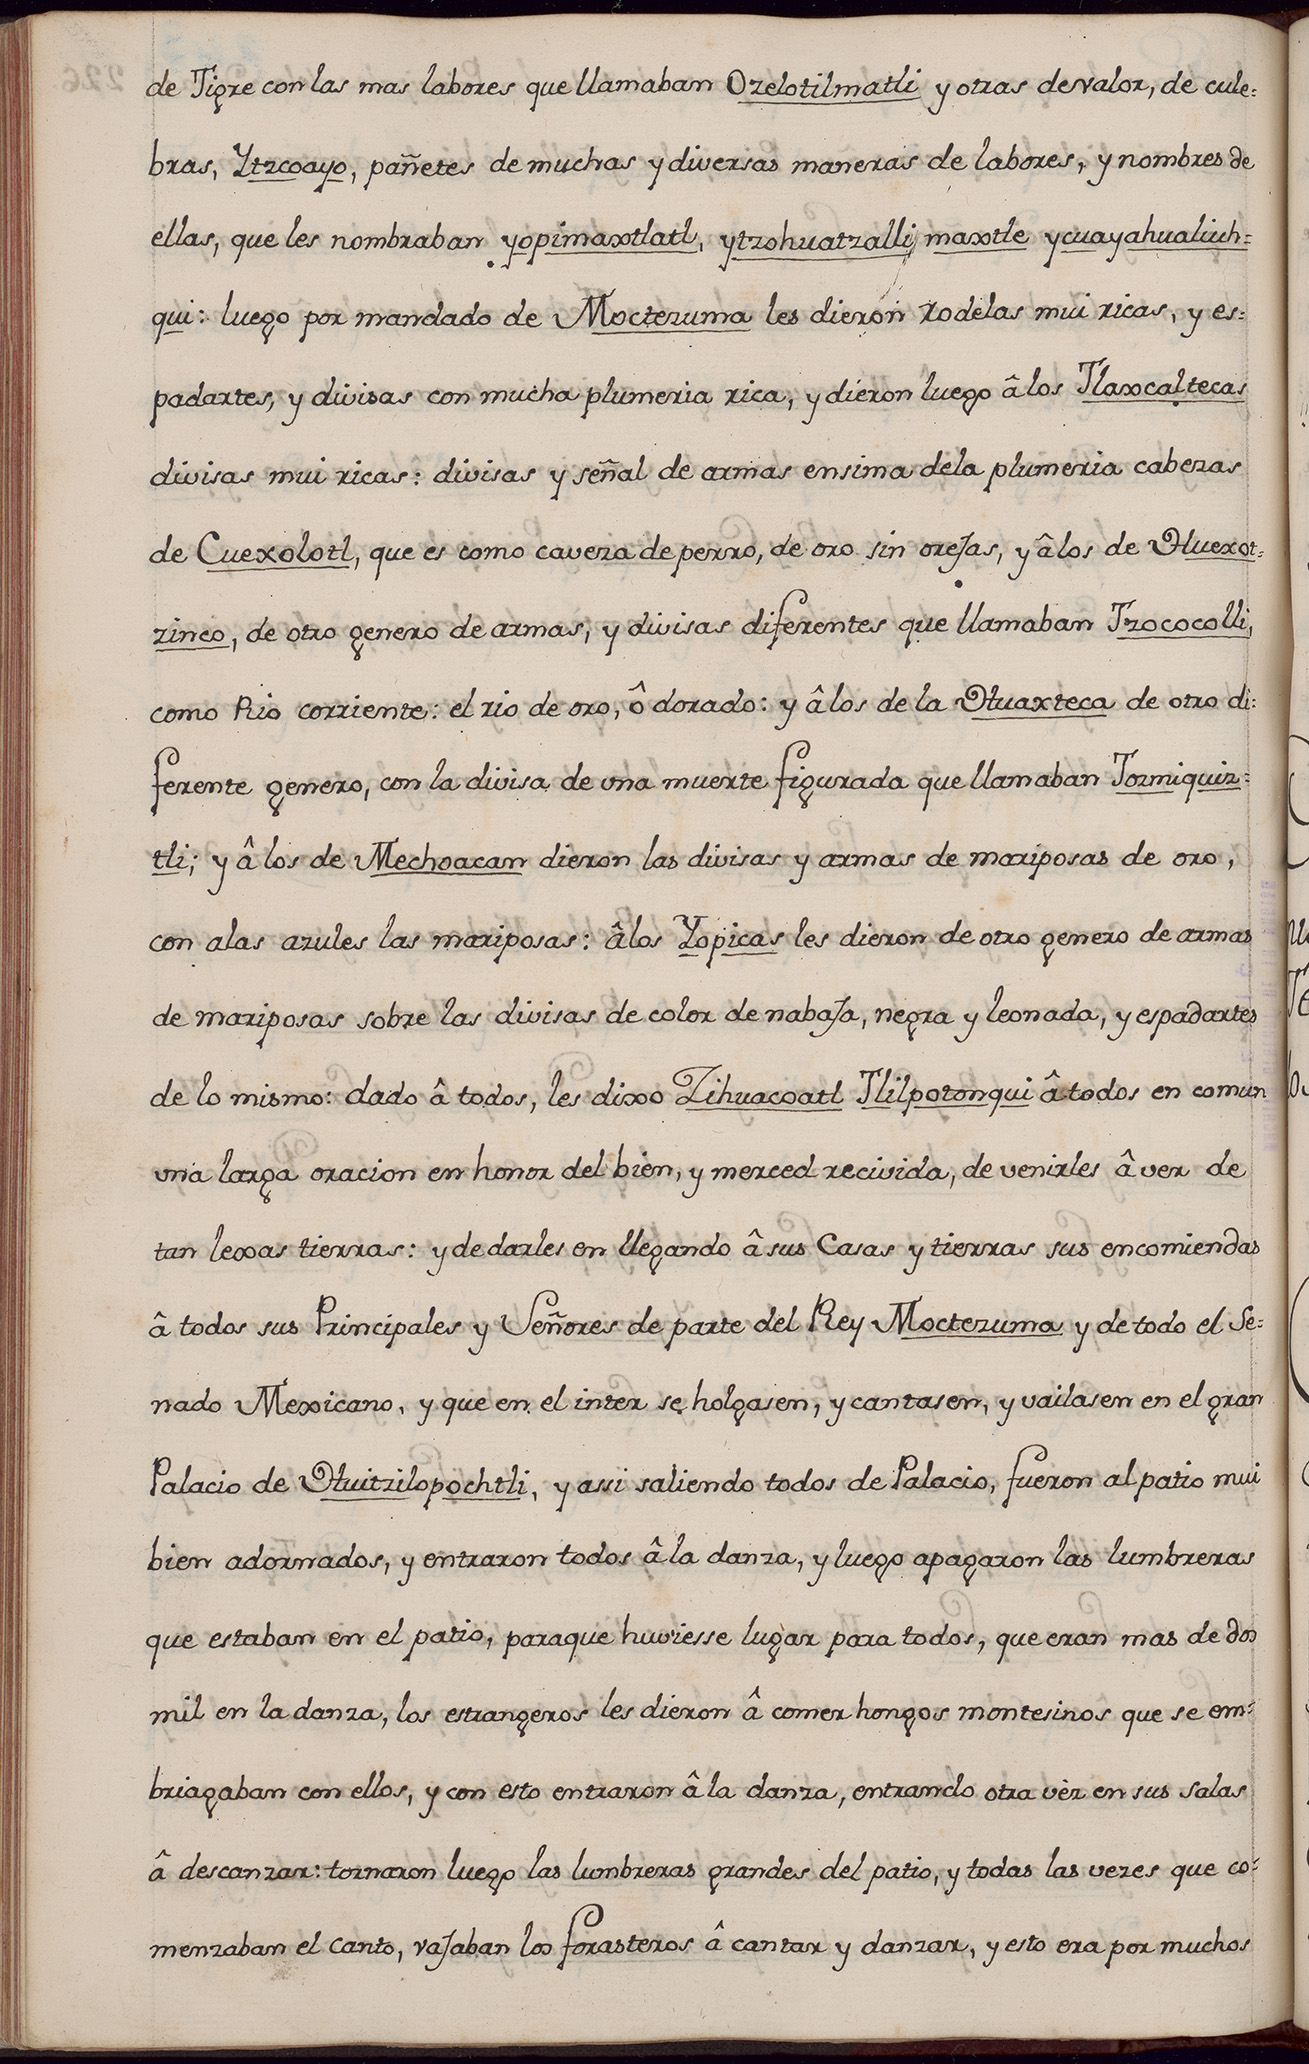 de Tigre con las mas labores que llamaban Ozelotilmatli y otras de valor, de cule=
bras, Ytzcoayo, pañetes de muchas y diversas maneras de labores, y nombres de
ellas, que les nombraban yopimaxtlatl, ytzohuatzalli, maxtle ycuayahualiuh=
qui: luego por mandado de Moctezuma les dieron rodelas mui ricas, y es=
padartes, y divisas con mucha plumeria rica, y dieron luego â los Tlaxcaltecas
divisas mui ricas: divisas y señal de armas ensima dela plumeria cabezas
de Cuexolotl, que es como caveza de perro, de oro sin orejas, y â los de Huexot=
zinco, de otro genero de armas, y divisas diferentes que llamaban Tzococolli,
como Rio corriente: el rio de oro, ô dorado: y â los de la Huaxteca de otro di=
ferente genero, con la divisa de vna muerte figurada que llamaban Tozmiquiz=
tli; y â los de Mechoacan dieron las divisas y armas de mariposas de oro,
con alas azules las mariposas: âlos Yopicas les dieron de otro genero de armas
de mariposas sobre las divisas de color de nabaja, negra y leonada, y espadartes
de lo mismo: dado â todos, les dixo Zihuacoatl Tlilpotonqui â todos en comun
vna larga oracion en honor del bien, y merced recivida, de venirles â ver de
tan lexas tierras: y de darles en llegando â sus Casas y tierras sus encomiendas
â todos sus Principales y Señores de parte del Rey Moctezuma y de todo el Se=
nado Mexicano, y que en el inter se holgasen, y cantasen, y vailasen en el gran
Palacio de Huitzilopochtli, y assi saliendo todos de Palacio, fueron al patio mui
bien adornados, y entraron todos â la danza, y luego apagaron las lumbreras
que estaban en el patio, paraque huviesse lugar para todos, que eran mas de dos
mil en la danza, los estrangeros les dieron â comer hongos montesinos que se em=
briagaban con ellos, y con esto entraron â la danza, entrando otra vèz en sus salas
â descanzar: tornaron luego las lumbreras grandes del patio, y todas las vezes que co=
menzaban el canto, vajaban los forasteros â cantar y danzar, y esto era por muchos